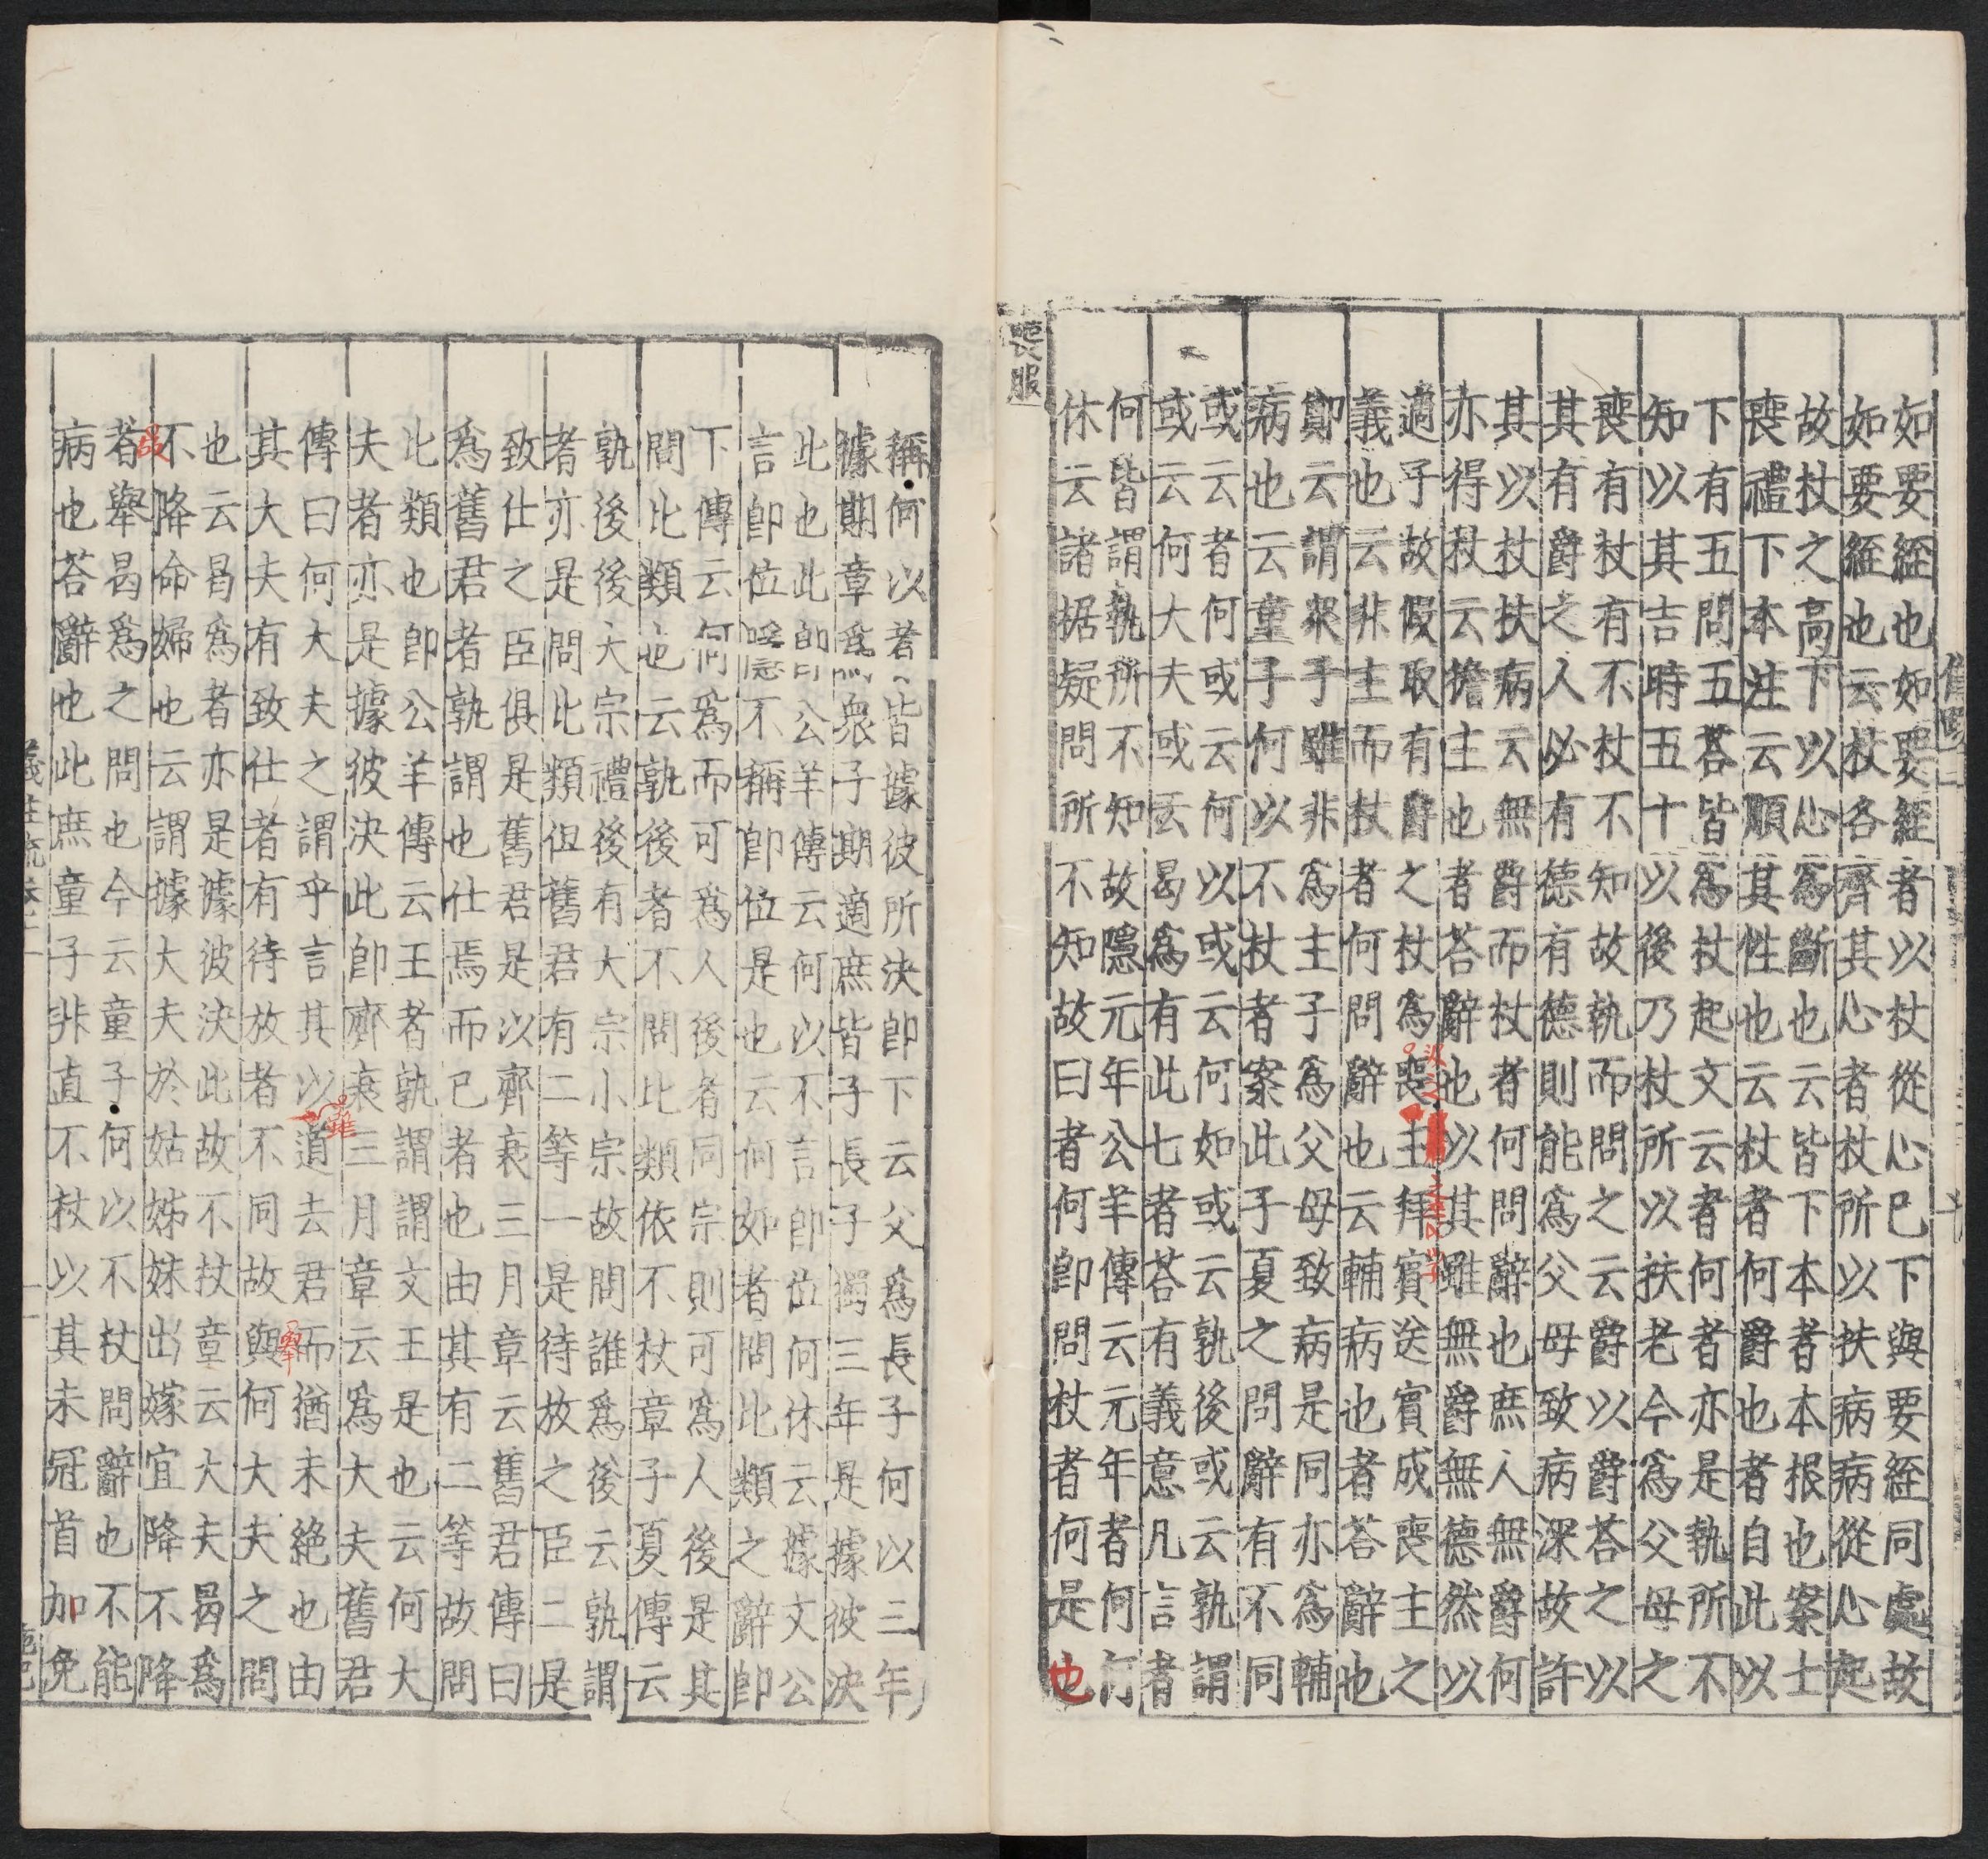 如要絰也如要絰者以杖從心已下與要絰同處故
如要絰也云杖各齊其心者杖所以扶病病從心起
故杖之高下以心爲斷也云皆下本者本根也案士
喪禮下本注云順其性也云杖者何爵也者自此以
下有五問五荅皆爲杖起文云者何者亦是執所不
知以其吉時五十以後乃杖所以扶老今爲父母之
喪有杖有不杖不知故執而問之云爵以爵荅之以
其有爵之人必有德有德則能爲父母致病深故許
其以杖扶病云無爵而杖者何問辭也庶人無爵何
亦得杖云擔主也者荅辭也以其雖無爵無德然以
適子故假取有爵之杖爲喪主拜賓送賓成喪主之
義也云非主而杖者何問辭也云輔病也者荅辭也
鄭云謂衆子雖非爲主子爲父母致病是同亦爲輔
病也云童子何以不杖者案此子夏之問辭有不同
或云者何或云何以或云何如或云孰後或云孰謂
或云何大夫或云曷爲有此七者荅有義意凡言者
何皆謂執所不知故隱元年公羊傳云元年者何何
休云諸据疑問所不知故曰者何卽問杖者何是也
喪服
稱何以者皆據彼所決卽下云父爲長子何以三年
據期章爲衆子期適庶皆子長子獨三年是據彼決
此也此卽公羊傳云何以不言卽位何休云據文公
言卽位隱不稱卽位是也云何如者問比類之辭卽
下傳云何爲而可爲人後者同宗則可爲人後是其
問比類也云孰後者不問比類依不杖章子夏傳云
孰後後大宗禮後有大宗小宗故問誰爲後云孰謂
者亦是問比類但舊君有二等一是待放之臣二是
致仕之臣俱是舊君是以齊衰三月章云舊君傳曰
爲舊君者孰謂也仕焉而已者也由其有二等故問
比類也卽公羊傳云王者孰謂謂文王是也云何大
夫者亦是據彼決此卽齊衰三月章云爲大夫舊君
傳曰何大夫之謂乎言其以道去君而猶未絕也由
其大夫有致仕者有待放者不同故與何大夫之問
也云曷爲者亦是據彼決此故不杖章云大夫曷爲
不降命婦也云謂據大夫於姑姊妹出嫁宜降不降
者舉曷爲之問也今云童子何以不杖問辭也不能
病也荅辭也此庶童子非直不杖以其未冠首加免
雖
舉